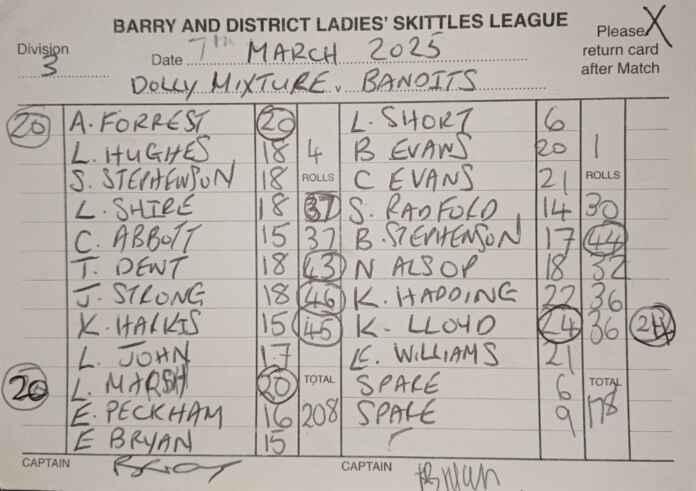 BARRY AND DISTRICT LADIES' SKITTLES LEAGUE
Division 3 Date 7TH MARCH 2025 Please X return card after Match
DOLLY MIXTURE v. BANDITS
20 A. FORREST 20 L. SHORT 6
L. HUGHES 18 4 B EVANS 20 1
S. STEPHENSON 18 ROLLS C EVANS 21 ROLLS
L. SHIRE 18 37 S. RADFOLD 14 30
C. ABBOTT 15 37 B. STEPHENSON 17 44
T. DEWT 18 43 N ALSOP 18 32
J. STRONG 18 46 K. HADDING 22 36
K. HARRIS 15 45 K. LLOYD 24 36 24
L. JOHN 17 E. WILLIAMS 21
20 L. MARSH 20 TOTAL SPARE 6 TOTAL
E. PECKHAM 16 208 SPARE 9 178
E BRYAN 15
CAPTAIN CAPTAIN